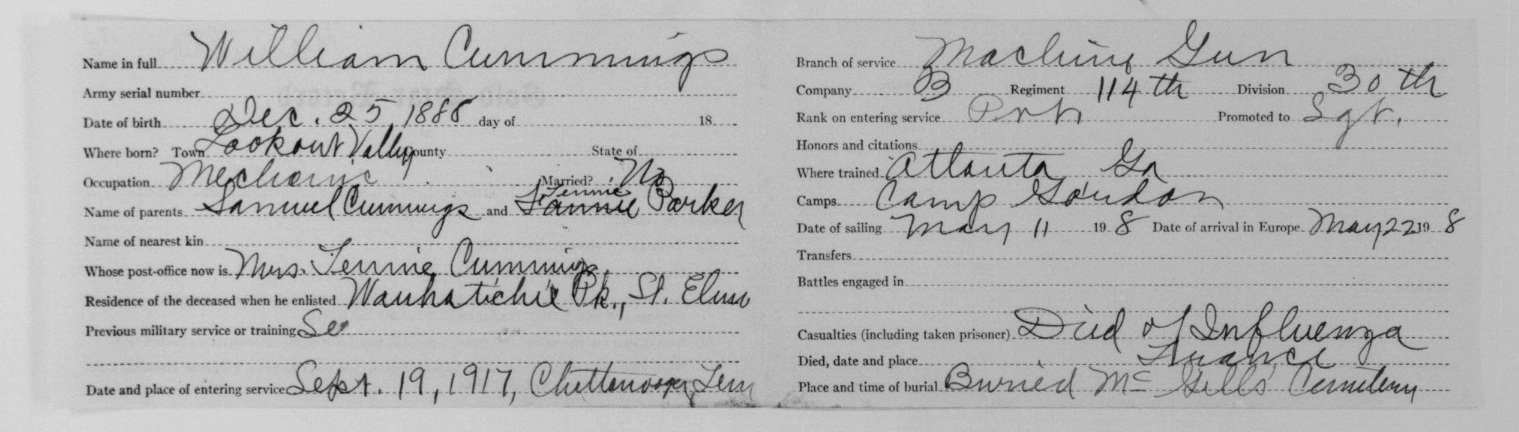 Name in full William Cummings
Army serial number
Date of birth Dec. 25, 1888 day of 18
Where born? Town Lookout Valley County State of
Occupation Mechanic Married? No
Tennie
Name of parents Samuel Cummings and Fannie Parker
Name of nearest kin
Whose post-office now is Mrs. Tennie Cummings
Residence of the deceased when he enlisted Wauhatchie Pk., St. Elmo
Previous military service or training
Date and place of entering service Sept. 19, 1917, Chattanooga, Tenn
Branch of service Machine Gun
Company B Regiment 114th Division 30th
Rank on entering service Pvt. Promoted to Sgt.
Honors and citations
Where trained Atlanta Ga
Camps Camp Gordon
Date of sailing May 11 19 8 Date of arrival in Europe May 22 19 8
Transfers
Battles engaged in
Casualties (including taken prisoner) Died of Influenza
Died, date and place France
Place and time of burial Buried McGills Cemetery